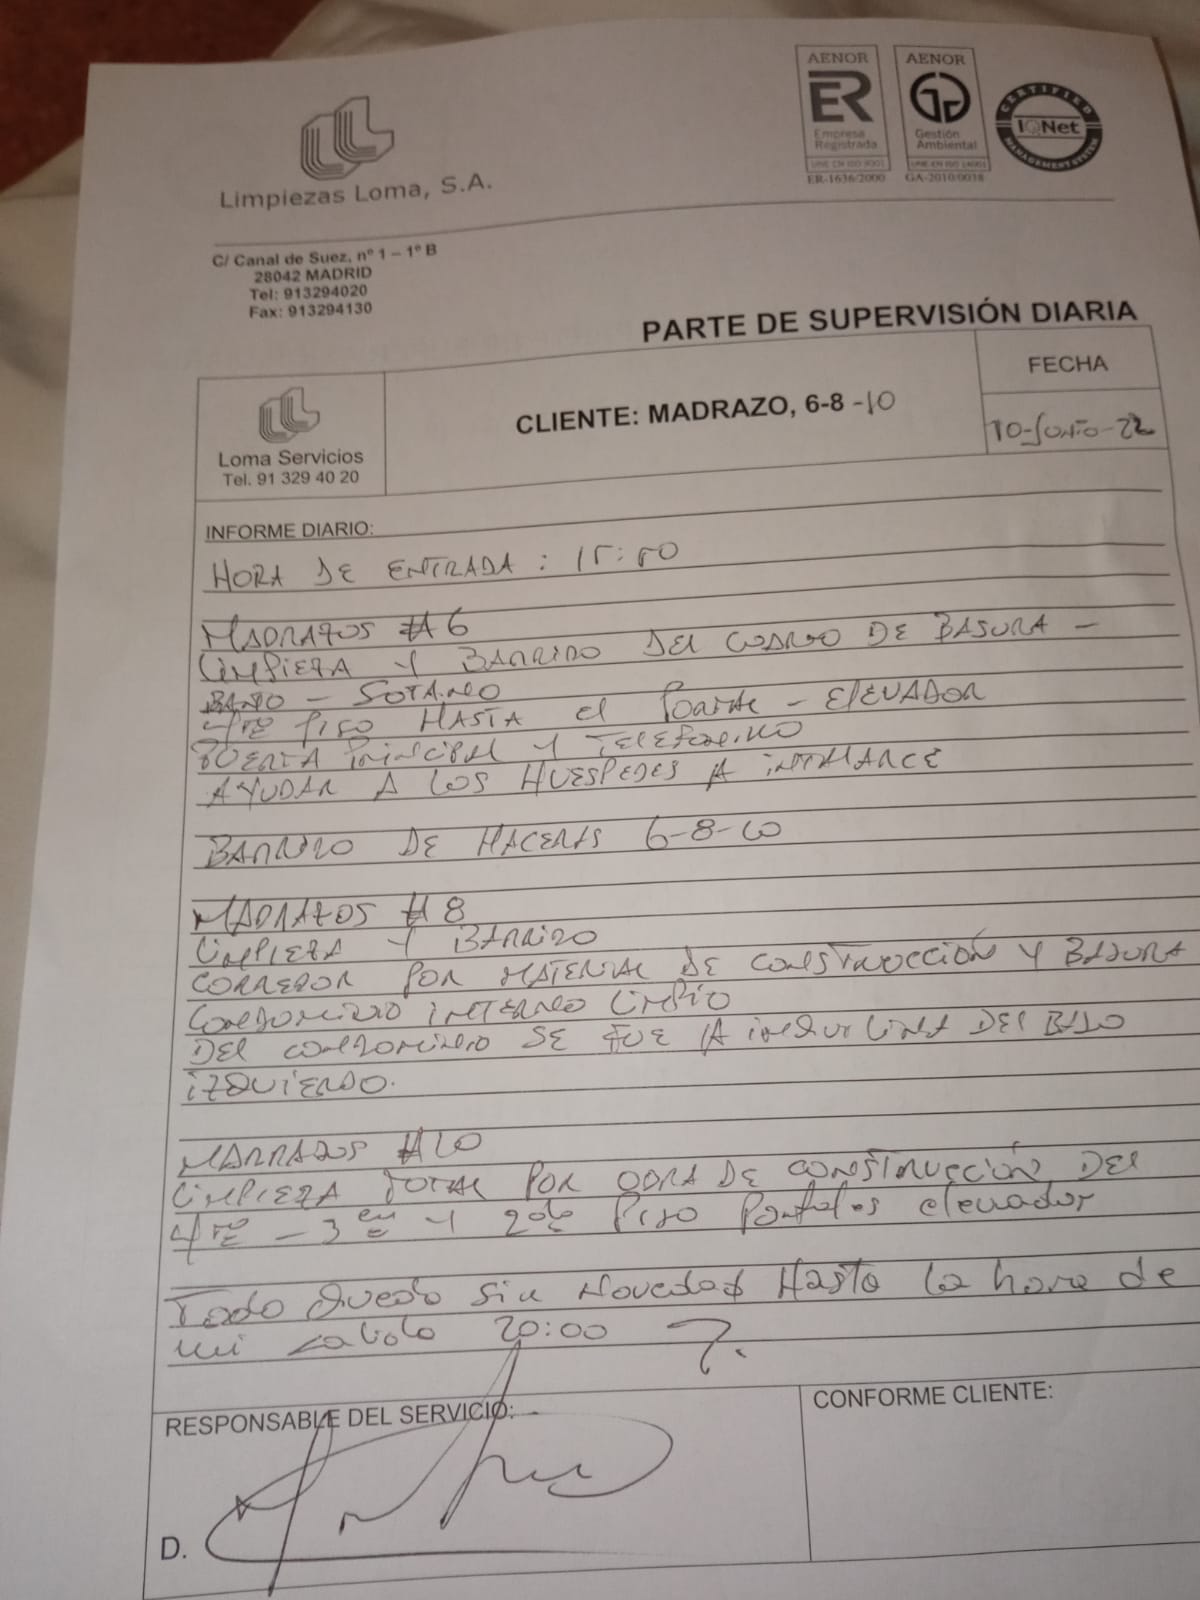 Limpiezas Loma, S.A.
AENOR
ER
Empresa
Registrada
UNE-EN ISO 9001
ER-1636/2000
AENOR
Gestión
Ambiental
UNE-EN ISO 14001
GA-2010/0038
CERTIFIED
IQNet
MANAGEMENT SYSTEM
C/ Canal de Suez, nº 1 – 1º B
28042 MADRID
Tel: 913294020
Fax: 913294130
PARTE DE SUPERVISIÓN DIARIA
Loma Servicios
Tel. 91 329 40 20
CLIENTE: MADRAZO, 6-8 -10
FECHA
10-Junio-22
INFORME DIARIO:
HORA DE ENTRADA : 15:00
MADRAZOS #6
LIMPIEZA Y BARRIDO DEL CUARTO DE BASURA –
BAJO – SOTANO
4TO PISO HASTA el Portal – ElEVADOR
PUERTA PRINCIPAL Y TELEFONILLO
AYUDAR A LOS HUESPEDES A INTALARCE
BARRIDO DE HACERAS 6-8-10
MADRAZOS #8
LIMPIEZA Y BARRIDO
CORREDOR POR MATERIAL DE CONSTRUCCIÓN Y BASURA
CONDOMINIO INTERNO LIMPIO
DEL CONDOMINIO SE FUE LA INQUILINA DEL BAJO
IZQUIERDO.
MADRAZOS #10
LIMPIEZA TOTAL POR OBRA DE CONSTRUCCIÓN DEL
4TO – 3 er Y 2do PISO Portales elevador
Todo Quedo sin Novedad Hasta la hora de
mi salida 20:00
RESPONSABLE DEL SERVICIO:
CONFORME CLIENTE:
D.